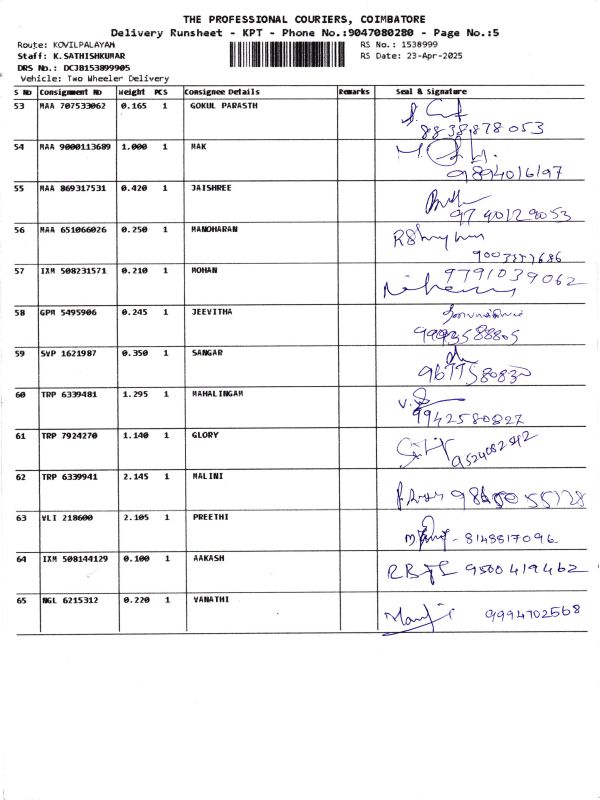 THE PROFESSIONAL COURIERS, COIMBATORE
Delivery Runsheet - KPT - Phone No.:9047080280 - Page No.:5
Route: KOVILPALAYAM RS No.: 1538999
Staff: K.SATHISHKUMAR RS Date: 23-Apr-2025
DRS No.: DCJB153899905
Vehicle: Two Wheeler Delivery
S NO Consignment NO Weight PCS Consignee Details Remarks Seal & Signature
53 MAA 707533062 0.165 1 GOKUL PARASTH
8838878053
54 MAA 9000113689 1.000 1 MAK
9894016197
55 MAA 869317531 0.420 1 JAISHREE
9790129053
56 MAA 651066026 0.250 1 MANOHARAN
57 IXM 508231571 0.210 1 MOHAN 9791039062
58 GPM 5495906 0.245 1 JEEVITHA
59 SVP 1621987 0.350 1 SANGAR
9677580830
60 TRP 6339481 1.295 1 MAHALINGAM
9942580827
61 TRP 7924270 1.140 1 GLORY
62 TRP 6339941 2.145 1 MALINI
63 VLI 218600 2.105 1 PREETHI
8148817096
64 IXM 508144129 0.100 1 AAKASH 9500419462
65 NGL 6215312 0.220 1 VANATHI 9994702568